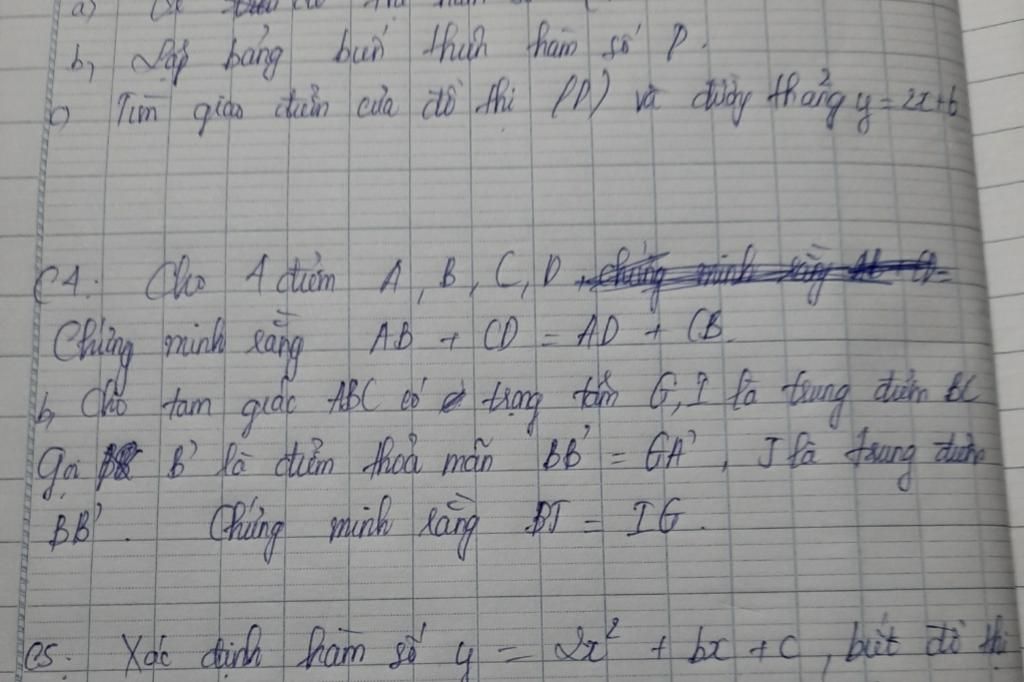 a)
b, Lập bảng biến thiên hàm số P.
c) Tìm giao điểm của đồ thị (P) và đường thẳng y = 2x+6
C4: Cho 4 điểm A, B, C, D,
Chứng minh rằng AB + CD = AD + CB.
b, Cho tam giác ABC có trọng tâm G, I là trung điểm BC
Gọi B' là điểm thoả mãn BB' = GA', J là trung điểm
BB'. Chứng minh rằng BJ = IG.
C5: Xác định hàm số y = 2x² + bx + c, biết đồ thị